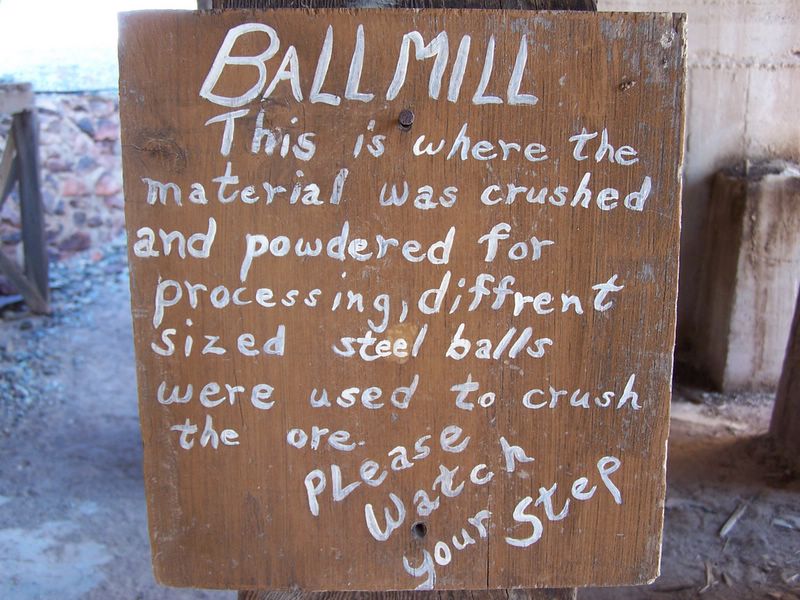 BALL MILL
This is where the
material was crushed
and powdered for
processing, diffrent
sized steel balls
were used to crush
the ore.
Please
Watch
your Step